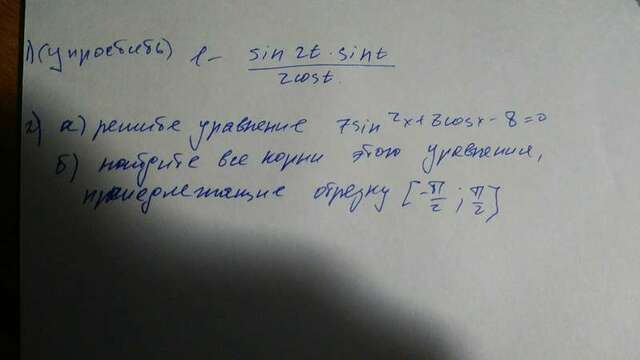 1) (упростить) 1 - sin 2t · sin t / 2 cos t.
2) а) решите уравнение 7sin²x+8cosx-8=0
б) найдите все корни этого уравнения,
принадлежащие отрезку [-π/2 ; π/2]